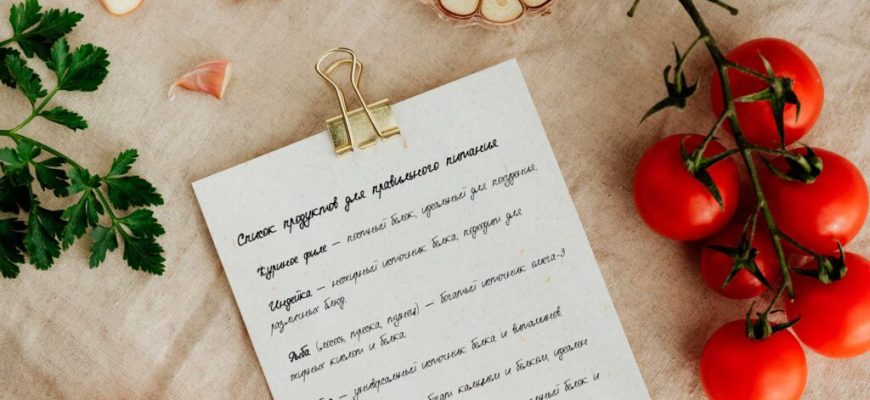 Список продуктов для правильного питания
Куриное филе — постный белок, идеальный для похудения.
Индейка — нежирный источник белка, подходит для
различных блюд.
Рыба (лосось, треска, тунец) — богатый источник омега-3
жирных кислот и белка.
— универсальный источник белка и витаминов.
кальцием и белком, идеален
белок и